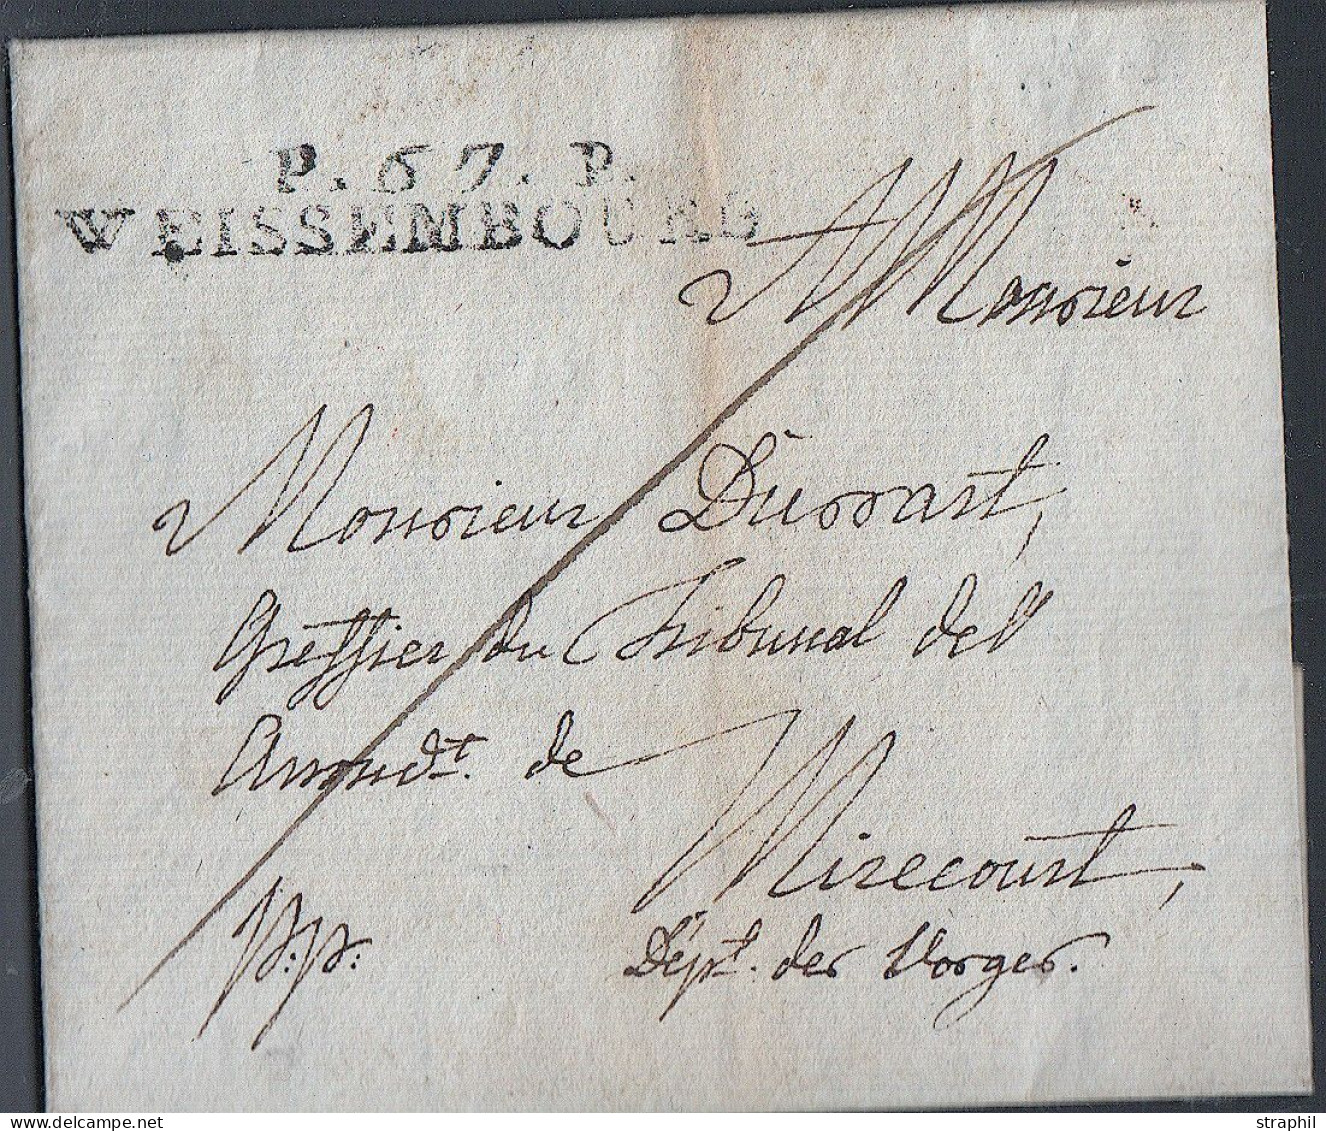 P. 67. P.
WEISSEMBOURG
A Monsieur
Monsieur Dussart,
Greffier du Tribunal del'
Arrondt. de
Mirecourt,
p:p:
Dépt. des Vosges.
straphil